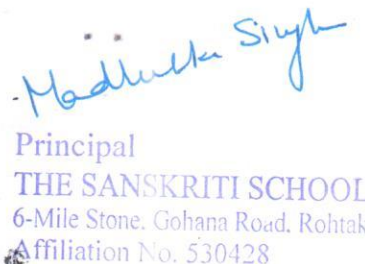 Madhulika Singh
Principal
THE SANSKRITI SCHOOL
6-Mile Stone, Gohana Road, Rohtak
Affiliation No. 530428